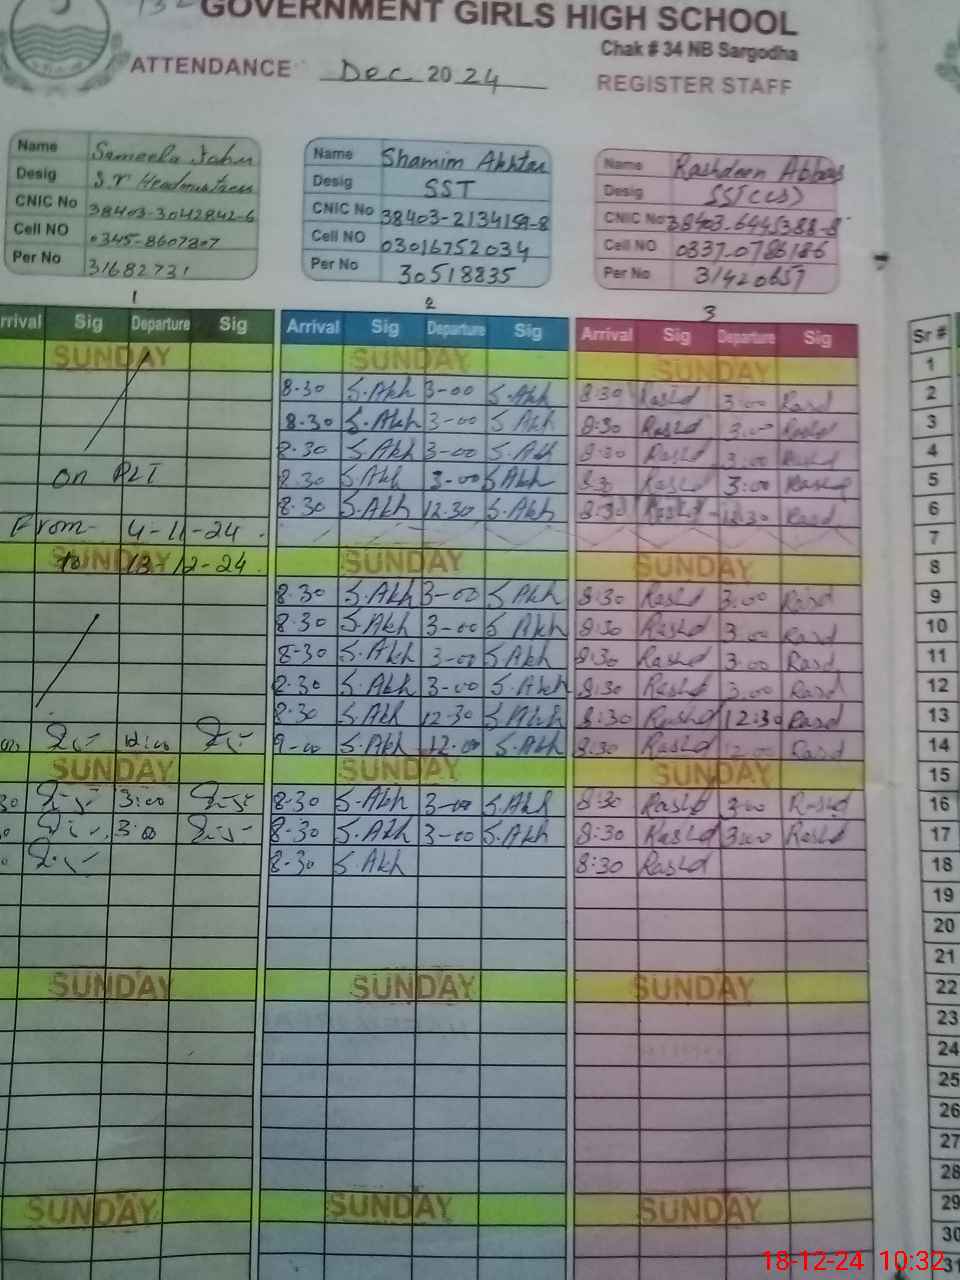 GOVERNMENT GIRLS HIGH SCHOOL
Chak # 34 NB Sargodha
ATTENDANCE Dec 2024 REGISTER STAFF
Name
Desig S.r Headmistress
CNIC No 38403-3042842-6
Cell NO 0345-8607207
Per No 31682731
Name Shamim Akhtar
Desig SST
CNIC No 38403-2134159-8
Cell NO 03016752034
Per No 30518835
Name Abbas
Desig SST(CS)
CNIC No 38403-6445388-8
Cell NO 0337-0786186
Per No 31420657
1 2 3
rrival Sig Departure Sig Arrival Sig Departure Sig Arrival Sig Departure Sig Sr #
SUNDAY SUNDAY SUNDAY 1
8-30 S.Akh 3-00 S.Akh 8:30 Rashd 3:00 Rasd 2
8-30 S.Akh 3-00 S Akh 8:30 Rashd 3:00 Rashd 3
8-30 S.Akh 3-00 S.Akh 8:30 Rashd 3:00 Rashd 4
on PLT 8.30 S.Akh 3-00 S Akh 8:30 Rashd 3:00 Rashd 5
8-30 S.Akh 12.30 S.Akh 8:30 Rashd 12:30 Rasd 6
From 4-11-24 . 7
SUNDAY to 13-12-24. SUNDAY SUNDAY 8
8.30 S.Akh 3-00 S Akh 8:30 Rashd 3:00 Rasd 9
8-30 S.Akh 3-00 S Akh 8:30 Rashd 3:00 Rasd 10
8-30 S.Akh 3-00 S.Akh 8:30 Rashd 3:00 Rasd 11
8-30 S.Akh 3-00 S.Akh 8:30 Rashd 3:00 Rasd 12
8-30 S.Akh 12-30 S.Akh 8:30 Rashd 12:30 Rasd 13
12:00 9-00 S.Akh 12.00 S.Akh 8:30 Rashd 12:00 Rasd 14
SUNDAY SUNDAY SUNDAY 15
30 3:00 8-30 S.Akh 3-00 S.Akh 8:30 Rashd 3:00 Rashd 16
3:00 8-30 S.Akh 3-00 S.Akh 8:30 Rashd 3:00 Rashd 17
8-30 S.Akh 8:30 Rashd 18
19
20
21
SUNDAY SUNDAY SUNDAY 22
23
24
25
26
27
28
SUNDAY SUNDAY SUNDAY 29
30
18-12-24 10:32
31